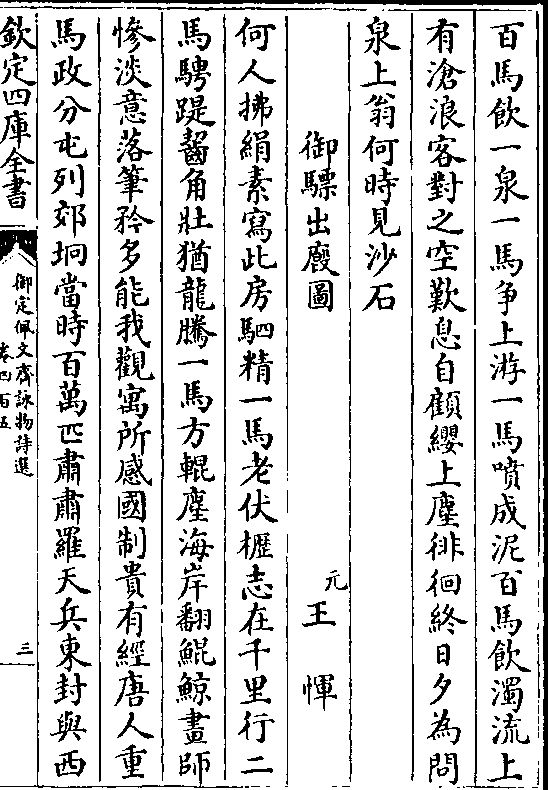 百馬飲一泉一馬争上游一馬噴成泥百馬飲濁流上
有滄浪客對之空歎息自顧纓上塵徘徊終日夕為問
泉上翁何時見沙石
御驃出廄圖
元
王惲
何人拂絹素寫此房駟精一馬老伏櫪志在千里行二
馬騁踶齧角壯猶龍騰一馬方輥塵海岸翻鯤鯨畫師
慘淡意落筆矜多能我觀寓所感國制貴有經唐人重
馬政分屯列郊坰當時百萬匹肅肅羅天兵東封與西
欽定四庫全書
御定佩文齋詠物詩選
卷四百五
三